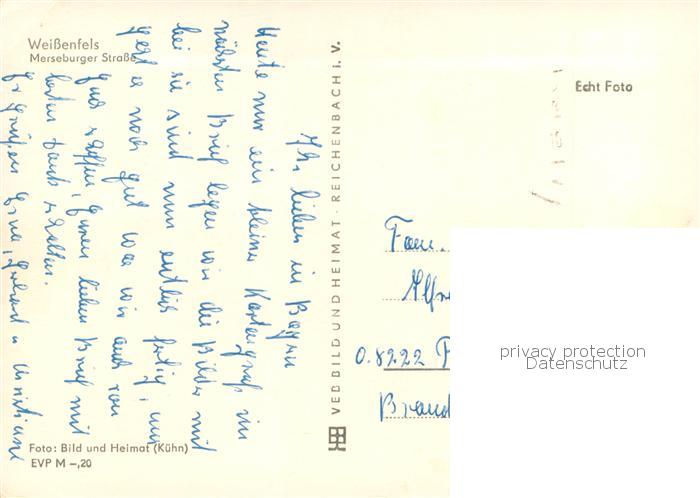 Weißenfels
Merseburger Straße
Ihr lieben in Bayern
Heute nur ein kleiner Kartengruß im
nächsten Brief legen wir die Bilder mit
bei sie sind nun entlich fertig, uns
geht es noch gut was wir auch von
Euch hoffen, Euren lieben Brief mit
besten Dank erhalten.
Es grüßen Erna, Gerhard u Christiane
Foto: Bild und Heimat (Kühn)
EVP M –,20
VEB BILD UND HEIMAT · REICHENBACH I. V.
Echt Foto
Fam.
Alfre
O. 8222
Brand
privacy protection
Datenschutz